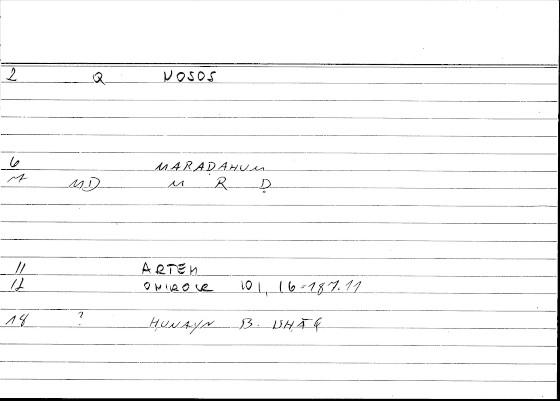 2 Q NOSOS
6 MARADAHUM
M MD M R Ḍ
11 ARTEM
12 ONIROCR 101, 16-187.11
18 ? HUNAYN B. ISHĀQ